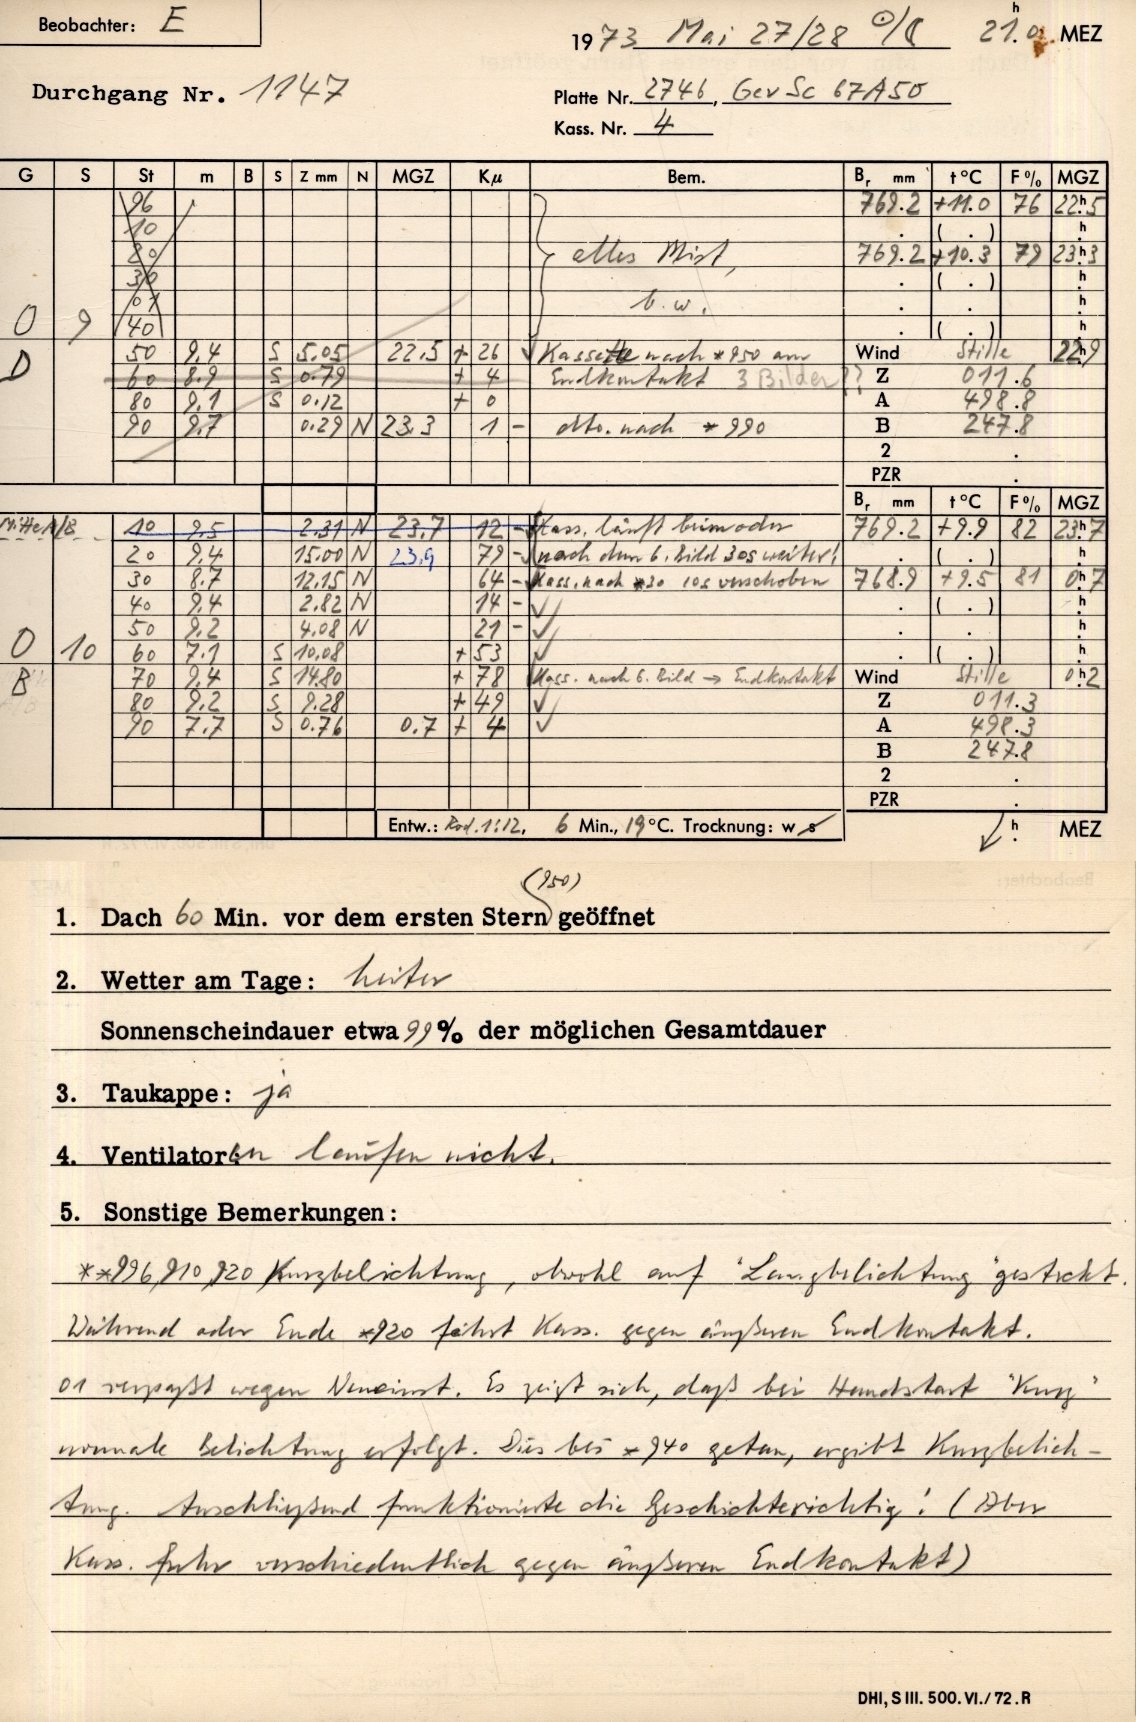 Beobachter: E
1973 Mai 27/28 ☉/☾ 21h.0 MEZ
Durchgang Nr. 1147
Platte Nr. 2746, Gev Sc 67A50
Kass. Nr. 4
G S St m B S Z mm N MGZ Kµ Bem. Br mm t °C F % MGZ
96 769.2 +11.0 76 22h.5
10 . ( . ) h
20 alles Mist, 769.2 +10.3 79 23h.3
30 . ( . ) h
01 b.w. . . h
O 9 40 . ( . ) h
D 50 9.4 S 5.05 22.5 + 26 ✓ Kassette nach *950 am Wind Stille 22h.9
60 8.9 S 0.79 + 4 Endkontakt 3 Bilder?? Z 011.6
80 9.1 S 0.12 + 0 A 498.8
90 9.7 0.29 N 23.3 1 - dto. nach * 990 B 247.8
2 .
PZR .
Br mm t °C F % MGZ
Mitte A/B 10 9.5 2.31 N 23.7 12 - Kass. läuft beim oder 769.2 +9.9 82 23h.7
20 9.4 15.00 N 23.9 79 - nach dem 6. Bild 30s weiter! . ( . ) h
30 8.7 12.15 N 64 - Kass. nach *30 10s verschoben 768.9 +9.5 81 0h.7
40 9.4 2.82 N 14 - ✓ . ( . ) h
50 9.2 4.08 N 21 - ✓ . . h
O 10 60 7.1 S 10.08 + 53 ✓ . ( . ) h
B 70 9.4 S 14.80 + 78 Kass. nach 6. Bild → Endkontakt Wind Stille 0h.2
80 9.2 S 9.28 + 49 ✓ Z 011.3
90 7.7 S 0.76 0.7 + 4 ✓ A 498.3
B 247.8
2 .
PZR .
Entw.: Rod. 1:12, 6 Min., 19 °C. Trocknung: w s h. MEZ
(950)
1. Dach 60 Min. vor dem ersten Stern geöffnet
2. Wetter am Tage: heiter
Sonnenscheindauer etwa 99% der möglichen Gesamtdauer
3. Taukappe: ja
4. Ventilatoren laufen nicht.
5. Sonstige Bemerkungen:
**996, 910, 920 Kurzbelichtung, obwohl auf "Langbelichtung" gesteckt.
Während oder Ende *920 fährt Kass. gegen äußeren Endkontakt.
01 verpaßt wegen Neueinst. Es zeigt sich, daß bei Handstart "Kurz"
normale Belichtung erfolgt. Dies bei *940 getan, ergibt Kurzbelich-
tung. Anschließend funktionierte die Geschichte richtig! (Aber
Kass. fuhr verschiedentlich gegen äußeren Endkontakt)
DHI, S III. 500. VI./72. R